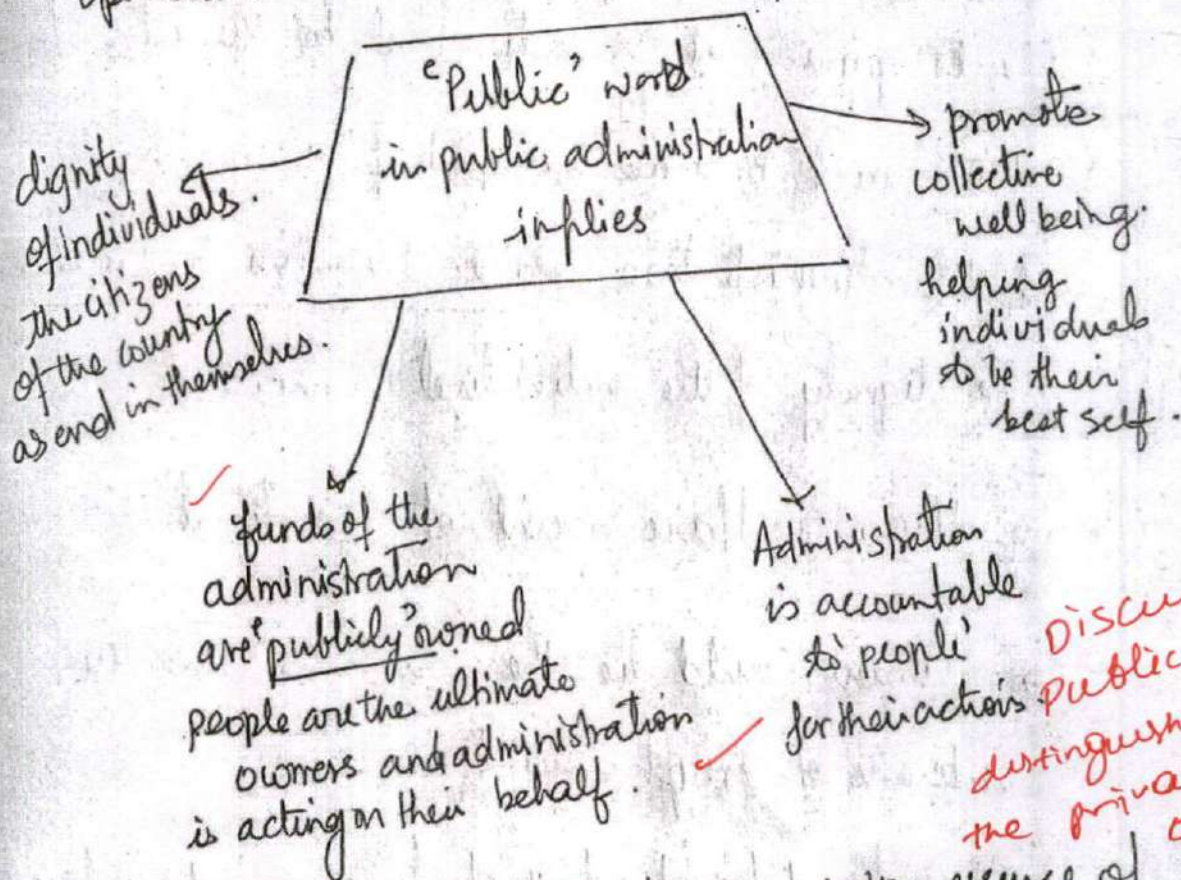 'Public' word
in public administration
implies
dignity
of individuals.
the citizens
of the country
as end in themselves.
promote
collective
well being.
helping
individuals
to be their
best self.
funds of the
administration
are 'publicly' owned
people are the ultimate
owners and administration
is acting on their behalf.
Administration
is accountable
to 'people'
for their actions.
Public
distinguish
the
of